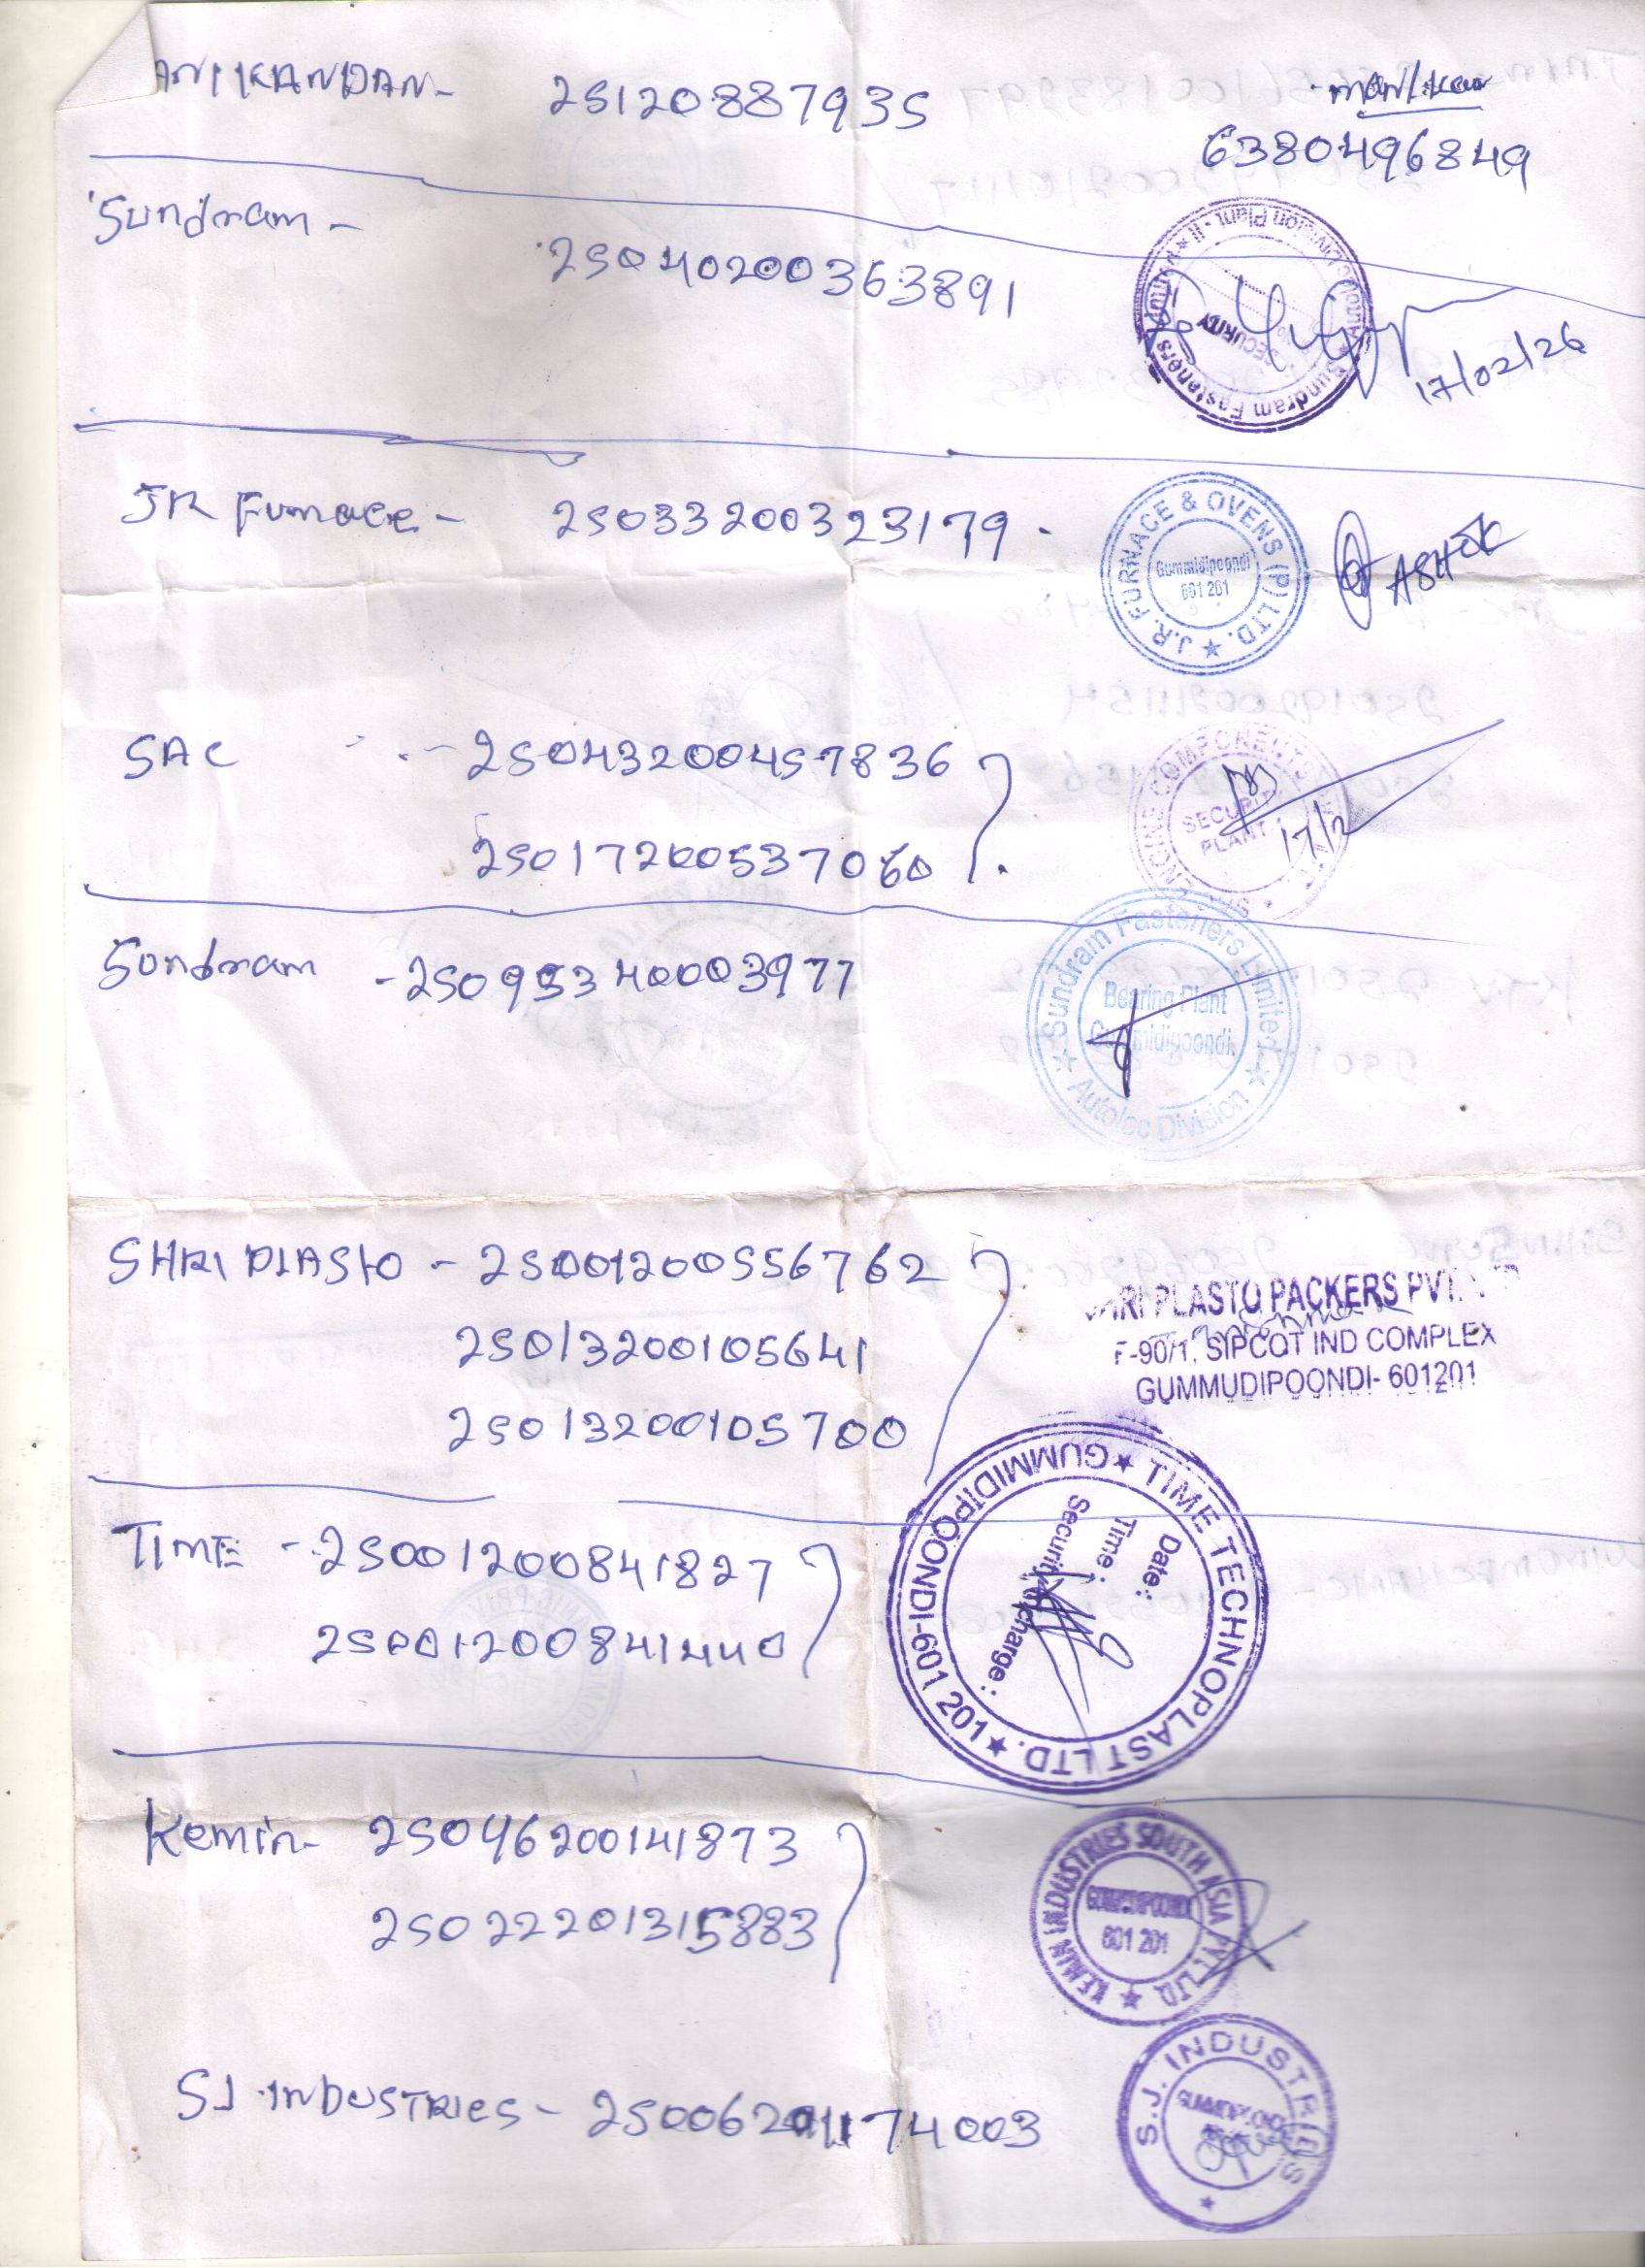 ANIKANDAN- 25120887935
6380496849
Sundram - 250402003 63891
Sundram Fasteners
SECURITY
17/02/26
JR Furnace - 25033200323179.
J.R. FURNACE & OVENS (P) LTD.
Gummidipoondi
601 201
ASHOK
SAC - 250432004 57836
25017200537060
ENGINE COMPONENTS
SECURITY
PLANT
17/2
Sundram - 250953400003977
Sundram Fasteners Limited
Bearing Plant
Gummidipoondi.
Autolec Division
SHRI PLASTO - 250012005556762
25013200105641
25013200105700
SHRI PLASTO PACKERS PVT. LTD
F-90/1, SIPCOT IND COMPLEX
GUMMUDIPOONDI- 601201
TIME - 25001200841827
25001200841440
TIME TECHNOPLAST LTD.
GUMMIDIPOONDI-601 201
Date:
Time:
Security Incharge:
Kemin- 25046200141873
25022201315883
KEMIN INDUSTRIES SOUTH ASIA PVT LTD.
GUMMIDIPOONDI
601 201
SJ INDUSTRIES - 25006201174003
S.J. INDUSTRIES